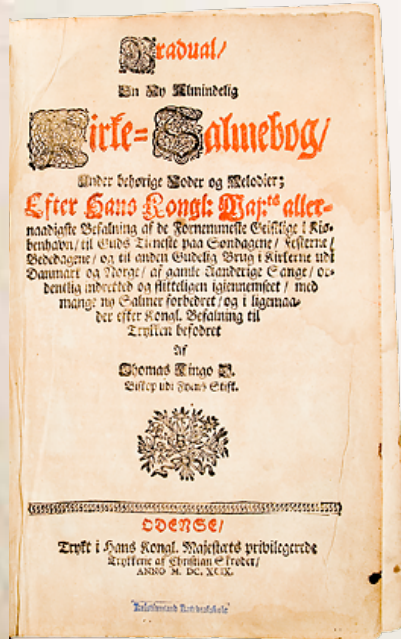 Gradual/
En Ny Almindelig
Kirke-Salmebog/
Under behørige Noder og Melodier;
Efter Hans Kongl: Maj:ts aller-
naadigste Befalning af de Fornemmeste Geistlige i Kiø-
benhavn/ til Guds Tieneste paa Søndagene/ Festerne/
Bededagene/ og til anden Gudelig Brug i Kirkerne udi
Danmark og Norge/ af gamle Aanderige Sange/ or-
dentlig indretted og flitteligen igiennemseet/ med
mange ny Salmer forbedret/ og i ligemaa-
der efter Kongl. Befalning til
Trykken befodret
Af
Thomas Kingo D.
Biskop udi Fyens Stift.
ODENSE/
Trykt i Hans Kongl. Majestæts privilegerede
Trykkerie af Christian Skrøder/
ANNO M. DC. XCIX.